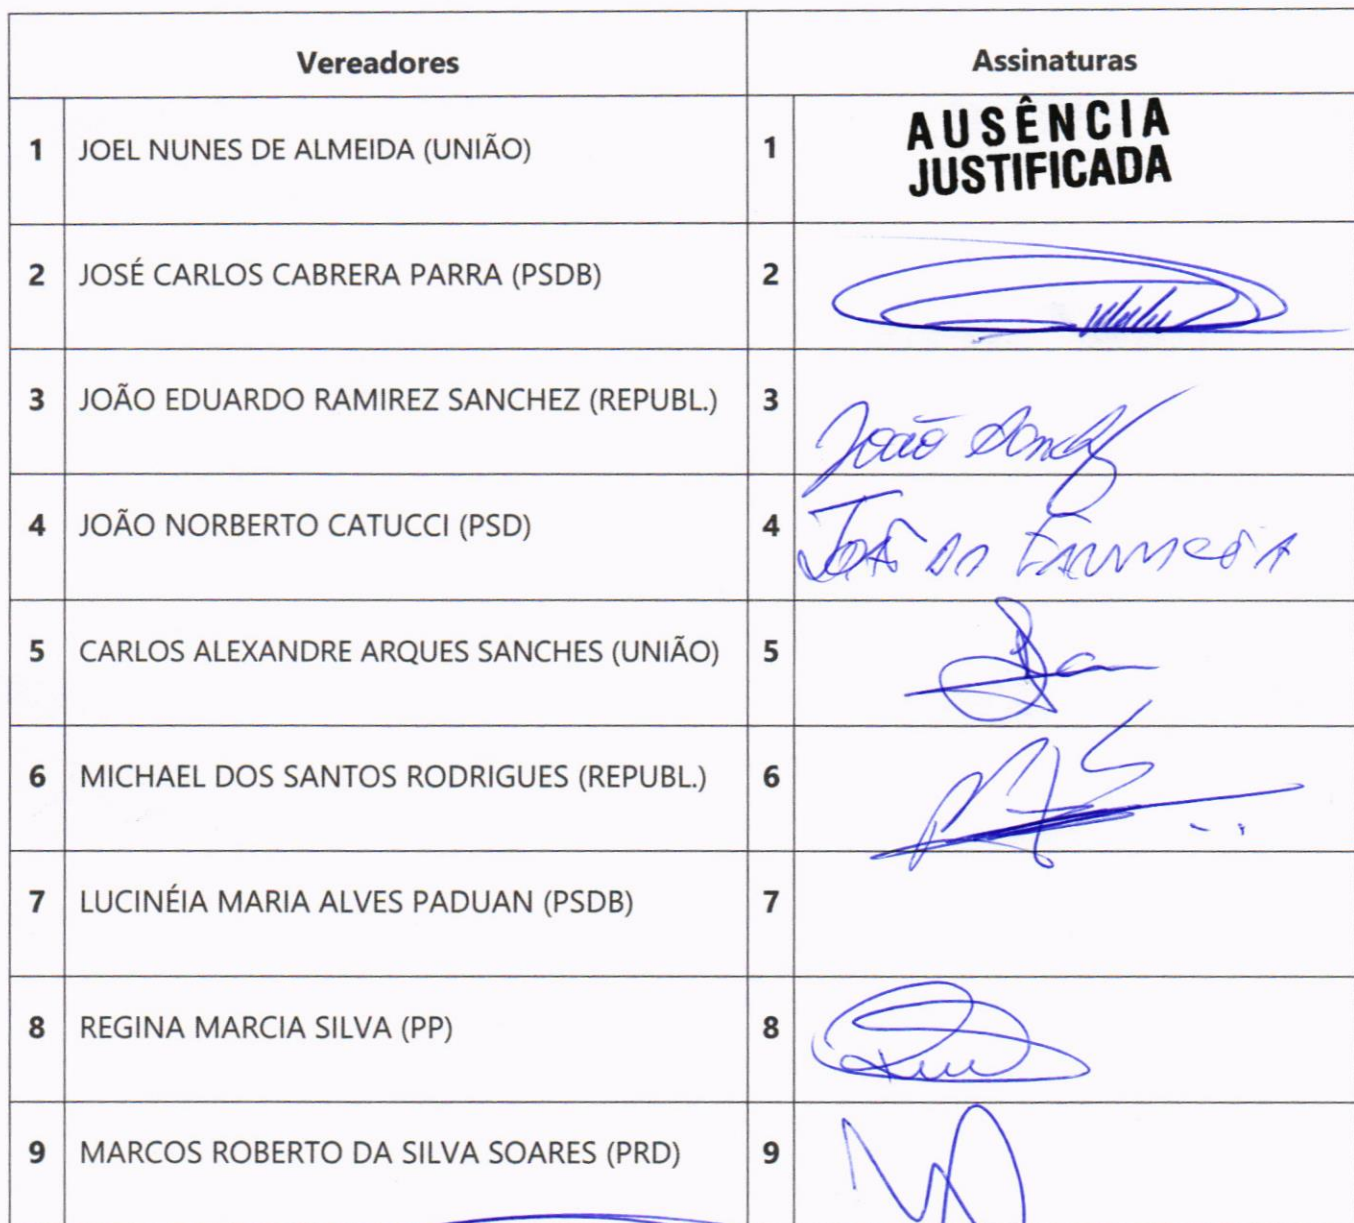 Vereadores Assinaturas
1 JOEL NUNES DE ALMEIDA (UNIÃO) 1 AUSÊNCIA
JUSTIFICADA
2 JOSÉ CARLOS CABRERA PARRA (PSDB) 2
3 JOÃO EDUARDO RAMIREZ SANCHEZ (REPUBL.) 3 João
4 JOÃO NORBERTO CATUCCI (PSD) 4 João da
5 CARLOS ALEXANDRE ARQUES SANCHES (UNIÃO) 5
6 MICHAEL DOS SANTOS RODRIGUES (REPUBL.) 6
7 LUCINÉIA MARIA ALVES PADUAN (PSDB) 7
8 REGINA MARCIA SILVA (PP) 8
9 MARCOS ROBERTO DA SILVA SOARES (PRD) 9